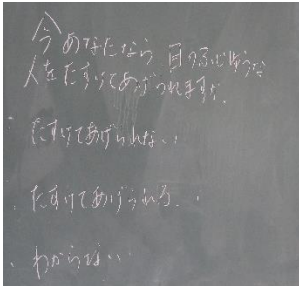 今あなたなら 目のふじゆうな
人をたすけてあげられますか。
・たすけてあげられない・
・たすけてあげられる・
・わからない・